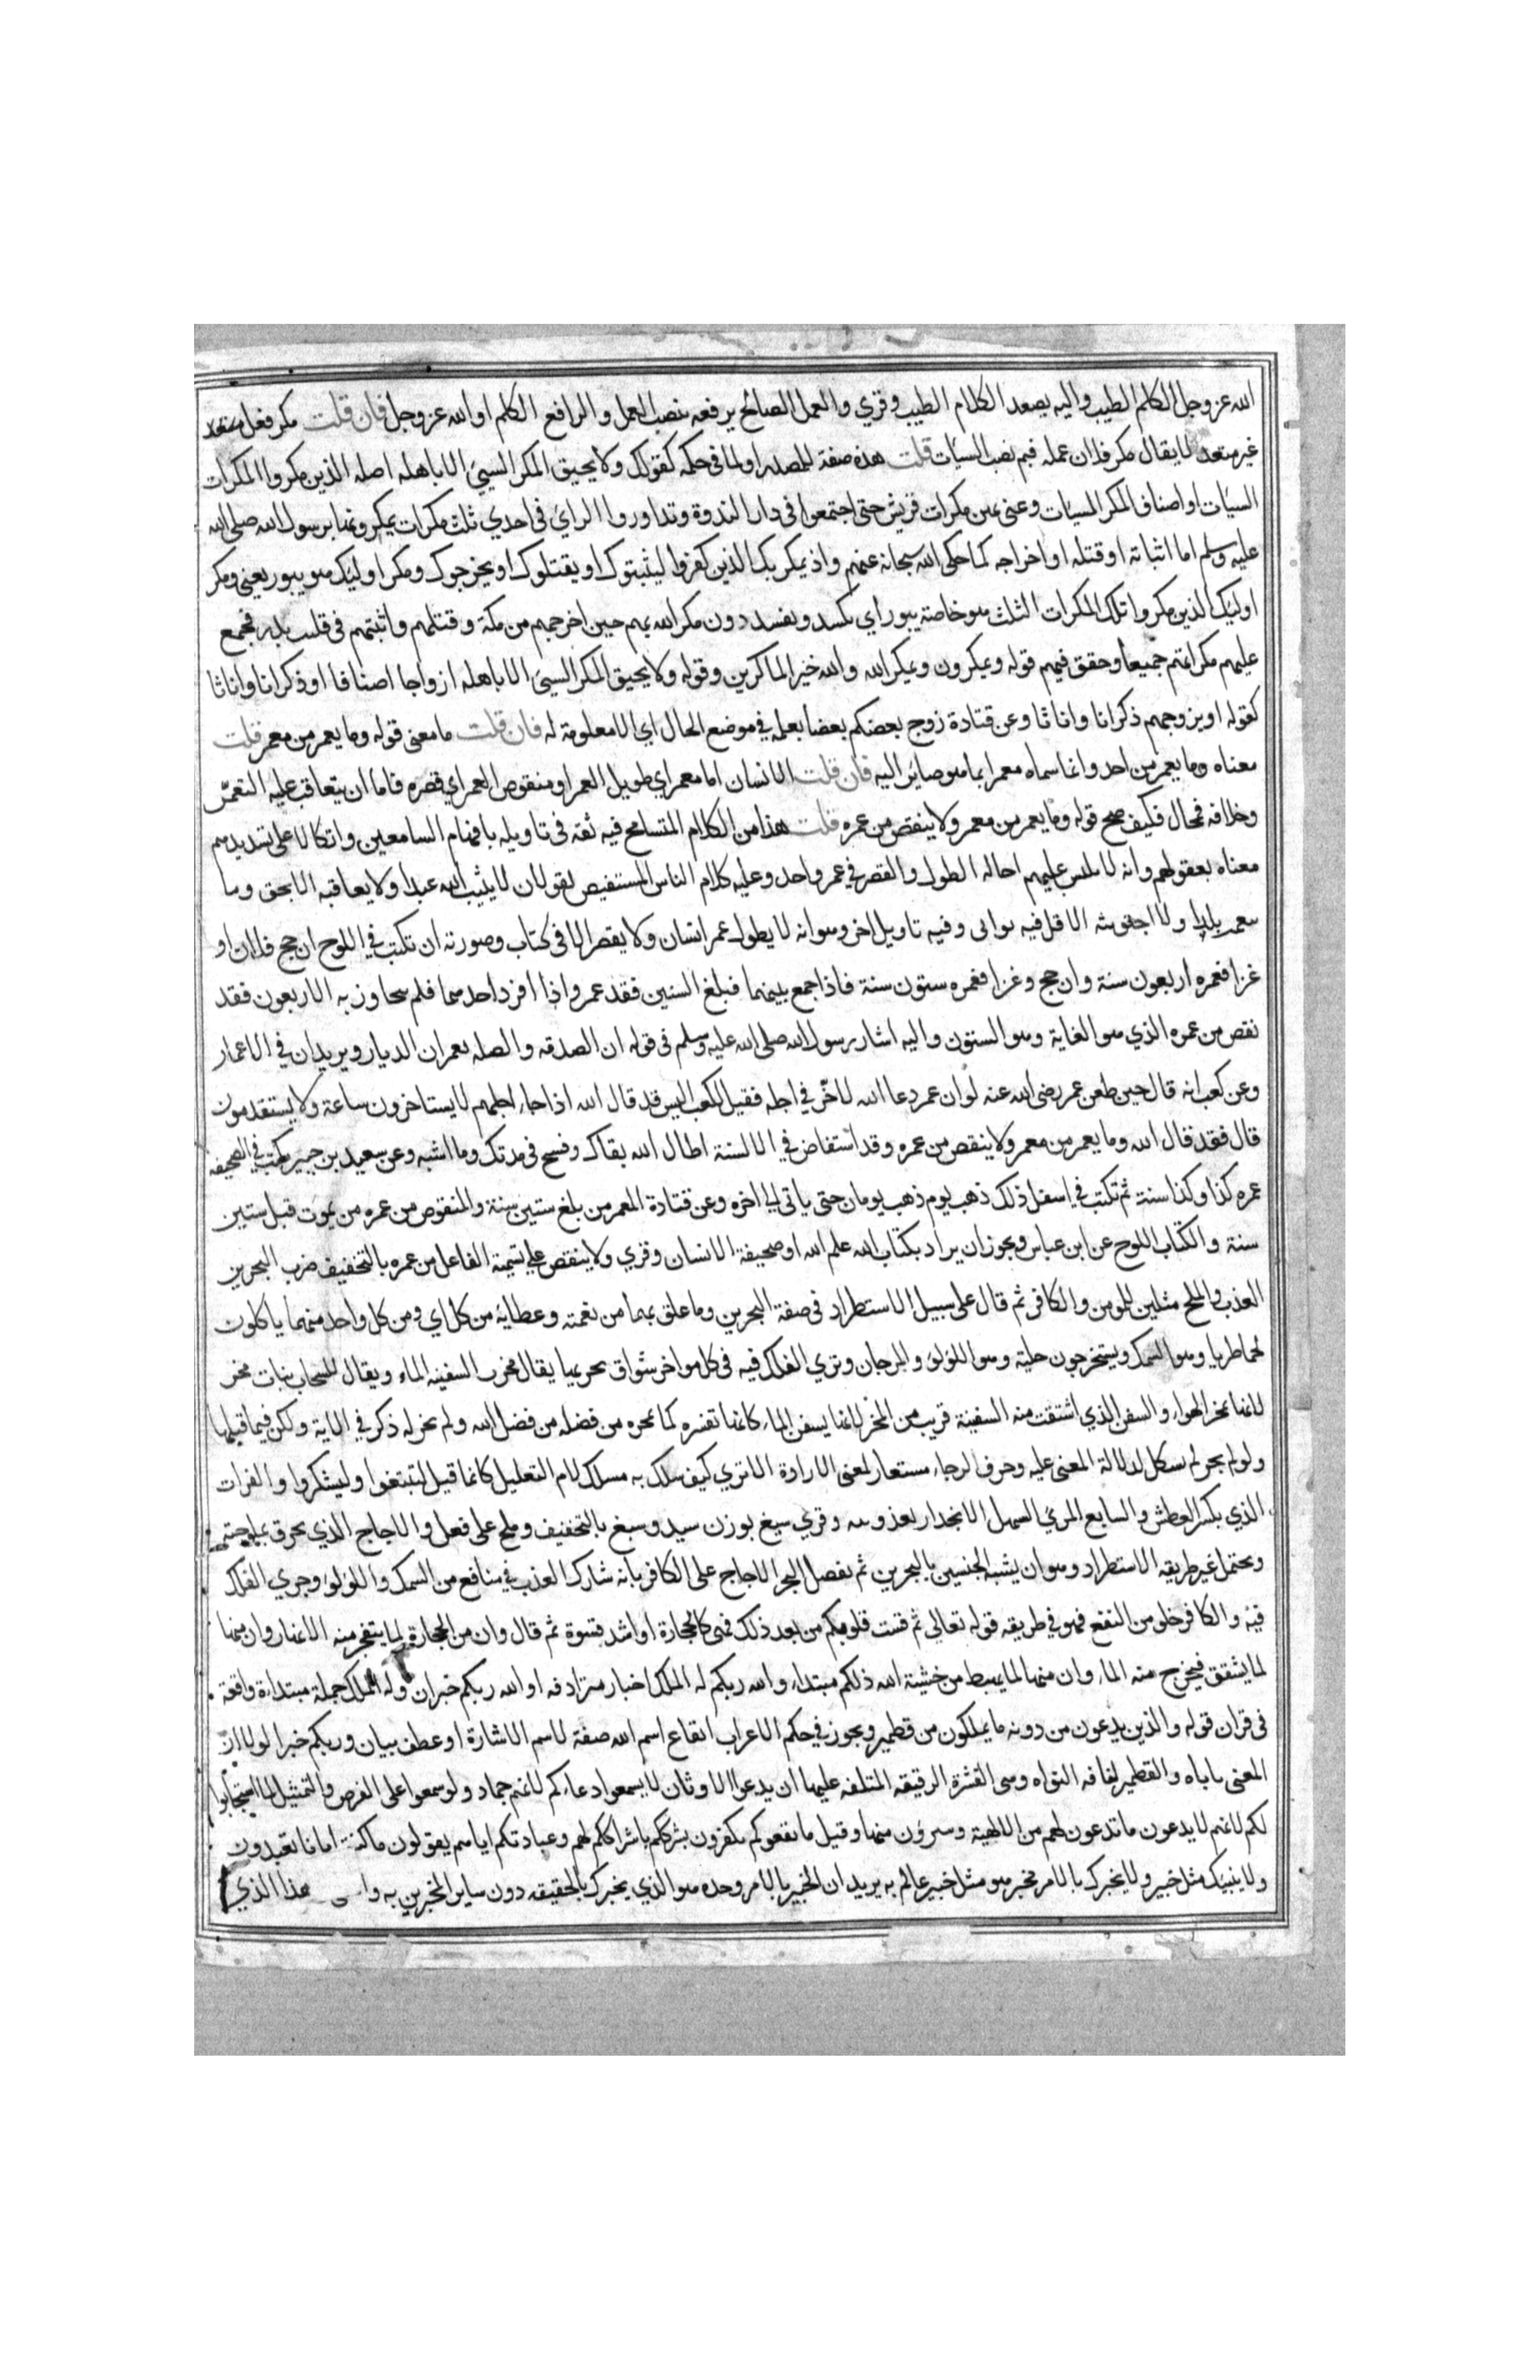 الله عز وجل الكلم الطيب واليه يصعد الكلام الطيب وقري والعمل الصالح يرفعه بنصب العمل والرافع الكلم او الله عز وجل فان قلت مكر فعل
غير متعد لا يقال مكر فلان عمله فبم نصب السيئات قلت هذه صفة للمصدر او لما في حكمه كقولك ولا يحيق المكر السيئ الا باهله اصله الذين مكروا المكرات
السيئات او اصناف المكر السيئات وعنى بهن مكرات قريش حتى اجتمعوا في دار الندوة وتداوروا الراي في احدي ثلث مكرات يمكرونها برسول الله صلى الله
عليه وسلم اما اثباته او قتله او اخراجه كما حكى الله سبحانه عنهم واذ يمكر بك الذين كفروا ليثبتوك او يقتلوك او يخرجوك ومكر اوليك هو يبور يعني ومكر
اوليك الذين مكروا تلك المكرات الثلث هو خاصة يبور اي يكسد ويفسد دون مكر الله بهم حين اخرجهم من مكة وقتلهم واثبتهم في قلب بدر فجمع
عليهم مكراتهم جميعا وحقق فيهم قوله ويمكرون ويمكر الله والله خير الماكرين وقوله ولا يحيق المكر السيئ الا باهله ازواجا اصنافا او ذكرانا واناثا
كقوله او يزوجهم ذكرانا واناثا وعن قتادة زوج بعضكم بعضا بعلمه في موضع الحال اي الا معلومة له فان قلت ما معنى قوله وما يعمر من معمر قلت
معناه وما يعمر من احد وانما سماه معمرا بما هو صائر اليه فان قلت الانسان اما معمر اي طويل العمر او منقوص العمر اي قصره فاما ان يتعاقب عليه التعمير
وخلافه فمحال فكيف صح قوله وما يعمر من معمر ولا ينقص من عمره قلت هذا من الكلام المتسامح فيه ثقة في تاويله بافهام السامعين واتكالا على تسديدهم
معناه بعقولهم وانه لا يلبس عليهم احالة الطول والقصر في عمر واحد وعليه كلام الناس المستفيض يقولون لا يثيب الله عبدا ولا يعاقبه الا بحق وما
ولا اجتويته الا قل فيه ثوائي وفيه تاويل اخر وهو انه لا يطول عمر انسان ولا يقصر الا في كتاب وصورته ان تكتب في اللوح ان حج فلان او
غزا فعمره اربعون سنة وان حج وغزا فعمره ستون سنة فاذا جمع بينهما فبلغ الستين فقد عمر واذا افرد احدهما فلم يتجاوز به الاربعون فقد
نقص من عمره الذي هو الغاية وهو الستون واليه اشار رسول الله صلى الله عليه وسلم في قوله ان الصدقه والصله يعمران الديار ويريدان في الاعمار
وعن كعب انه قال حين طعن عمر رضى الله عنه لو ان عمر دعا الله لاخر في اجله فقيل لكعب اليس قد قال الله اذا جاء اجلهم لا يستاخرون ساعة ولا يستقدمون
قال فقد قال الله وما يعمر من معمر ولا ينقص من عمره وقد استفاض في الالسنة اطال الله بقاك وفسح في مدتك وما اشبه وعن سعيد بن جبير يكتب في الصحيفه
عمره كذا وكذا سنة ثم تكتب في اسفل ذلك ذهب يوم ذهب يومان حتى ياتي الي اخره وعن قتادة المعمر من بلغ ستين سنة والمنقوص من عمره من يموت قبل ستين
سنة والكتاب اللوح عن ابن عباس ويجوز ان يراد بكتاب الله علم الله او صحيفة الانسان وقري ولا ينقص علي تسمية الفاعل من عمره بالتخفيف ضرب البحرين
العذب والملح مثلين للمومن والكافر ثم قال على سبيل الاستطراد في صفة البحرين وما علق بهما من نعمته وعطايه من كل اي ومن كل واحد منهما ياكلون
لحما طريا وهو السمك ويستخرجون حلية وهو اللؤلؤ والمرجان وتري الفلك فيه في كل مواخر شواق بحريها يقال مخرت السفينه الماء ويقال للسحاب بنات مخر
لانها تمخر الهواء والسفن الذي اشتقت منه السفينة قريب من المخر لانها يسفن الماء كانها تقشره كما تمخره من فضله من فضل الله ولم يجر له ذكر في الاية ولكن فيما قبلها
ولو لم يجر لم يشكل لدلالة المعنى عليه وحرف الرجاء مستعار لمعنى الارادة الا تري كيف سلك به مسلك لام التعليل كانما قيل لتبتغوا وليشكروا والفرات
الذي يكسر العطش والسايغ المرئ السهل الانحدار لعذوبته وقري سيغ بوزن سيد وسيغ بالتخفيف وملح على فعل والاجاج الذي يحرق بملوحته
ويحتمل غير طريقه الاستطراد وهو ان يشبه الجنسين بالبحرين ثم يفضل البحر الاجاج على الكافر بانه شارك العذب في منافع من السمك واللؤلؤ وجري الفلك
فيه والكافر خلو من النفع فهو في طريقه قوله تعالي ثم قست قلوبكم من بعد ذلك فهي كالحجارة او اشد قسوة ثم قال وان من الحجارة لما يتفجر منه الانهار وان منها
لما يشقق فيخرج منه الماء وان منها لما يهبط من خشية الله ذلكم مبتداء والله ربكم له الملك اخبار مترادفه او الله ربكم خبران وله الملك جملة مبتداءة واقعة
في قران قوله والذين يدعون من دونه ما يملكون من قطمير ويجوز في حكم الاعراب ايقاع اسم الله صفة لاسم الاشارة او عطف بيان وربكم خبرا لولا ان
المعنى ياباه والقطمير لفافه النواه وهي القشرة الرقيقه الملتفه عليها ان يدعوا الاوثان لا يسمعوا دعاءكم لانهم جماد ولو سمعوا على الفرض والتمثيل لما استجابوا
لكم لانهم لا يدعون ما تدعون لهم من الالهية ويتبرؤن منها وقيل ما نفعوكم يكفرون بشرككم باشراككم لهم وعبادتكم اياهم يقولون ما كنتم ايانا تعبدون
ولا ينبيك مثل خبير ولا يخبرك بالامر مخبر هو مثل خبير عالم به يريد ان الخبير بالامر وحده هو الذي يخبرك بالحقيقه دون ساير المخبرين به هذا الذي